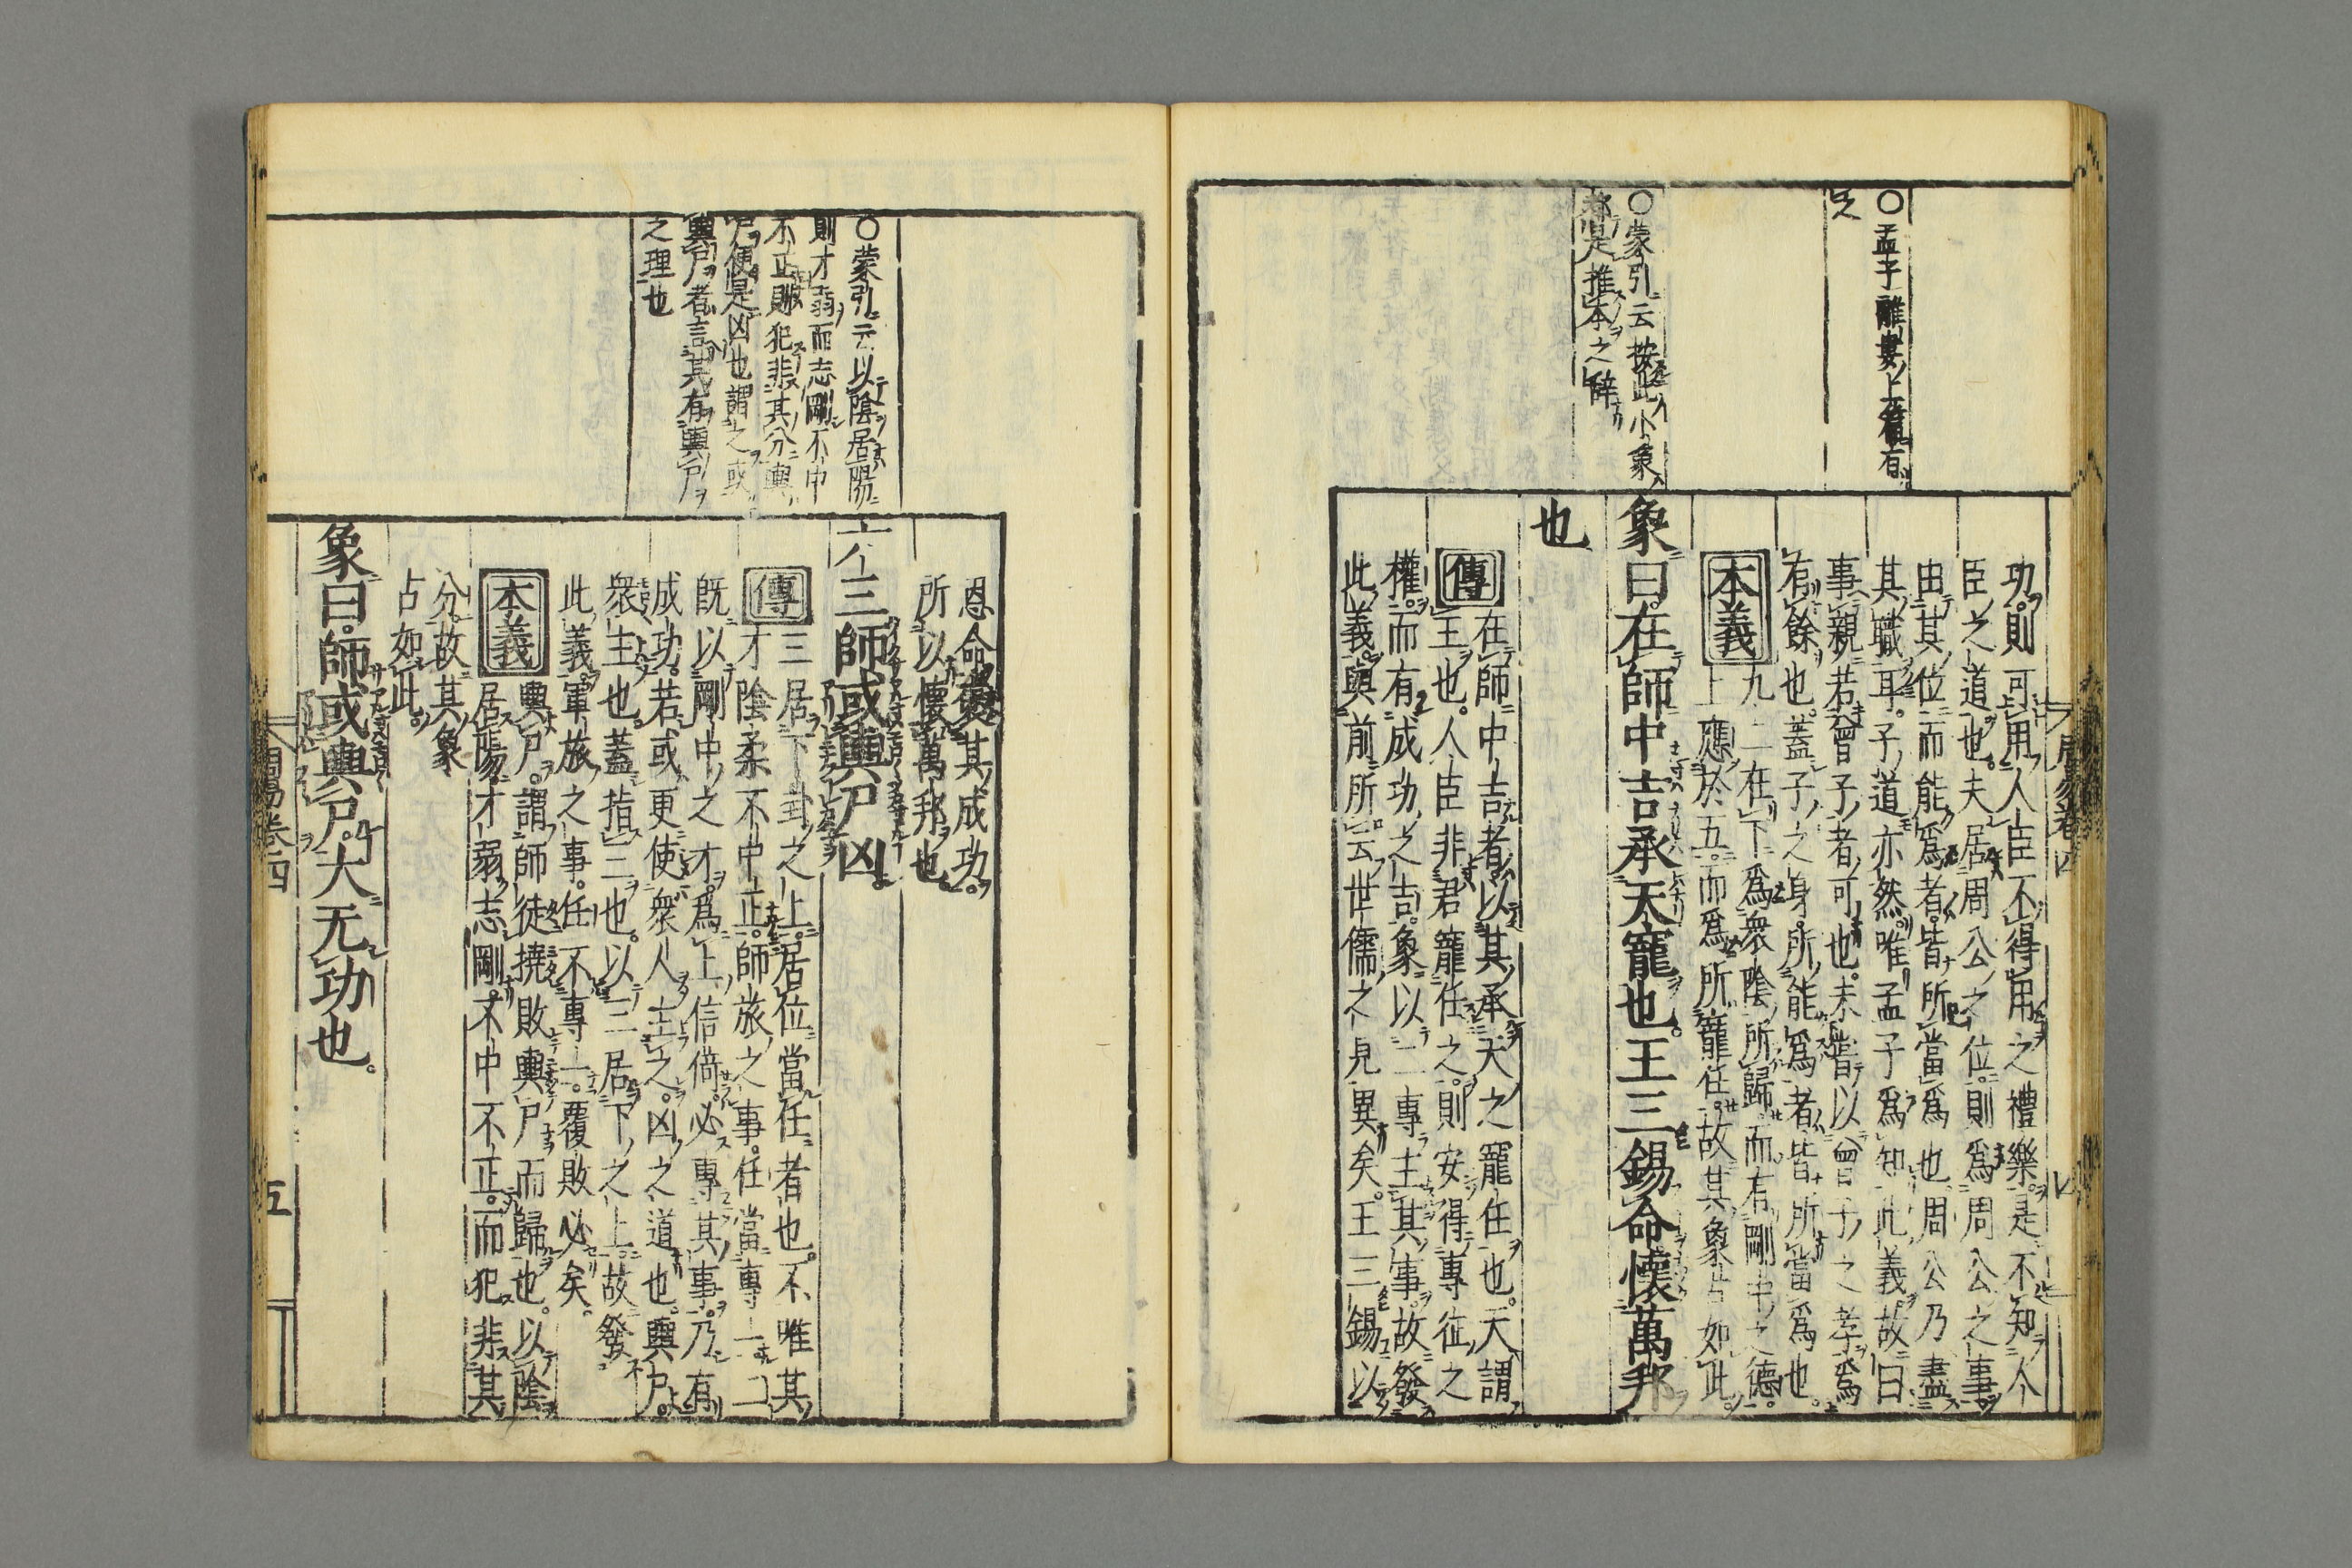 功則可用人臣不得用之禮樂是不知人
臣之道也夫居周公之位則爲周公之事
由其位而能爲者皆所當爲也周公乃盡
其職耳子道亦然唯孟子爲知此義故曰
事親若曾子者可也未嘗以曾子之孝爲
有餘也蓋子之身所能爲者皆所當爲也
本義
九二在下爲衆陰所歸而有剛中之德
上應於五而爲所寵任故其象占如此
象曰在師中吉承天寵也王三錫命懷萬邦
也
傳
在師中吉者以其承天之寵任也天謂
王也人臣非君寵任之則安得專征之
權而有成功之吉象以二專主其事故發
此義與前所云世儒之見異矣王三錫以
○孟子離婁上篇有
○蒙引云按此小象
都是推本之辭
周易卷四
恩命褒其成功
所以懷萬邦也
六三師或輿尸凶
傳
三居下卦之上居位當任者也不唯其
才陰柔不中正師旅之事任當專一二
既以剛中之才爲上信倚必專其事乃有
成功若或更使衆人主之凶之道也輿尸
衆主也蓋指三也以三居下之上故發
此義軍旅之事任不專一覆敗必矣
本義
輿尸謂師徒撓敗輿尸而歸也以陰
居陽才弱志剛不中不正而犯非其
分故其象
占如此
象曰師或輿尸大无功也
○蒙引云以陰居陽
則才弱而志剛不中
不正則犯非其分輿
尸便是凶也謂之或
輿尸者言其有輿尸
之理也
周易卷四
五